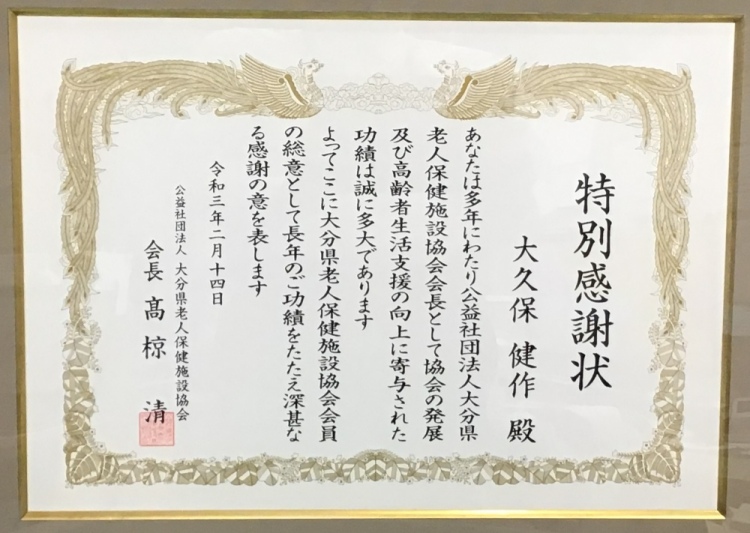 特別感謝状
大久保 健作 殿
あなたは多年にわたり公益社団法人大分県
老人保健施設協会会長として協会の発展
及び高齢者生活支援の向上に寄与された
功績は誠に多大であります
よってここに大分県老人保健施設協会会員
の総意として長年のご功績をたたえ深甚な
る感謝の意を表します
令和三年二月十四日
公益社団法人 大分県老人保健施設協会
会長 高椋 清